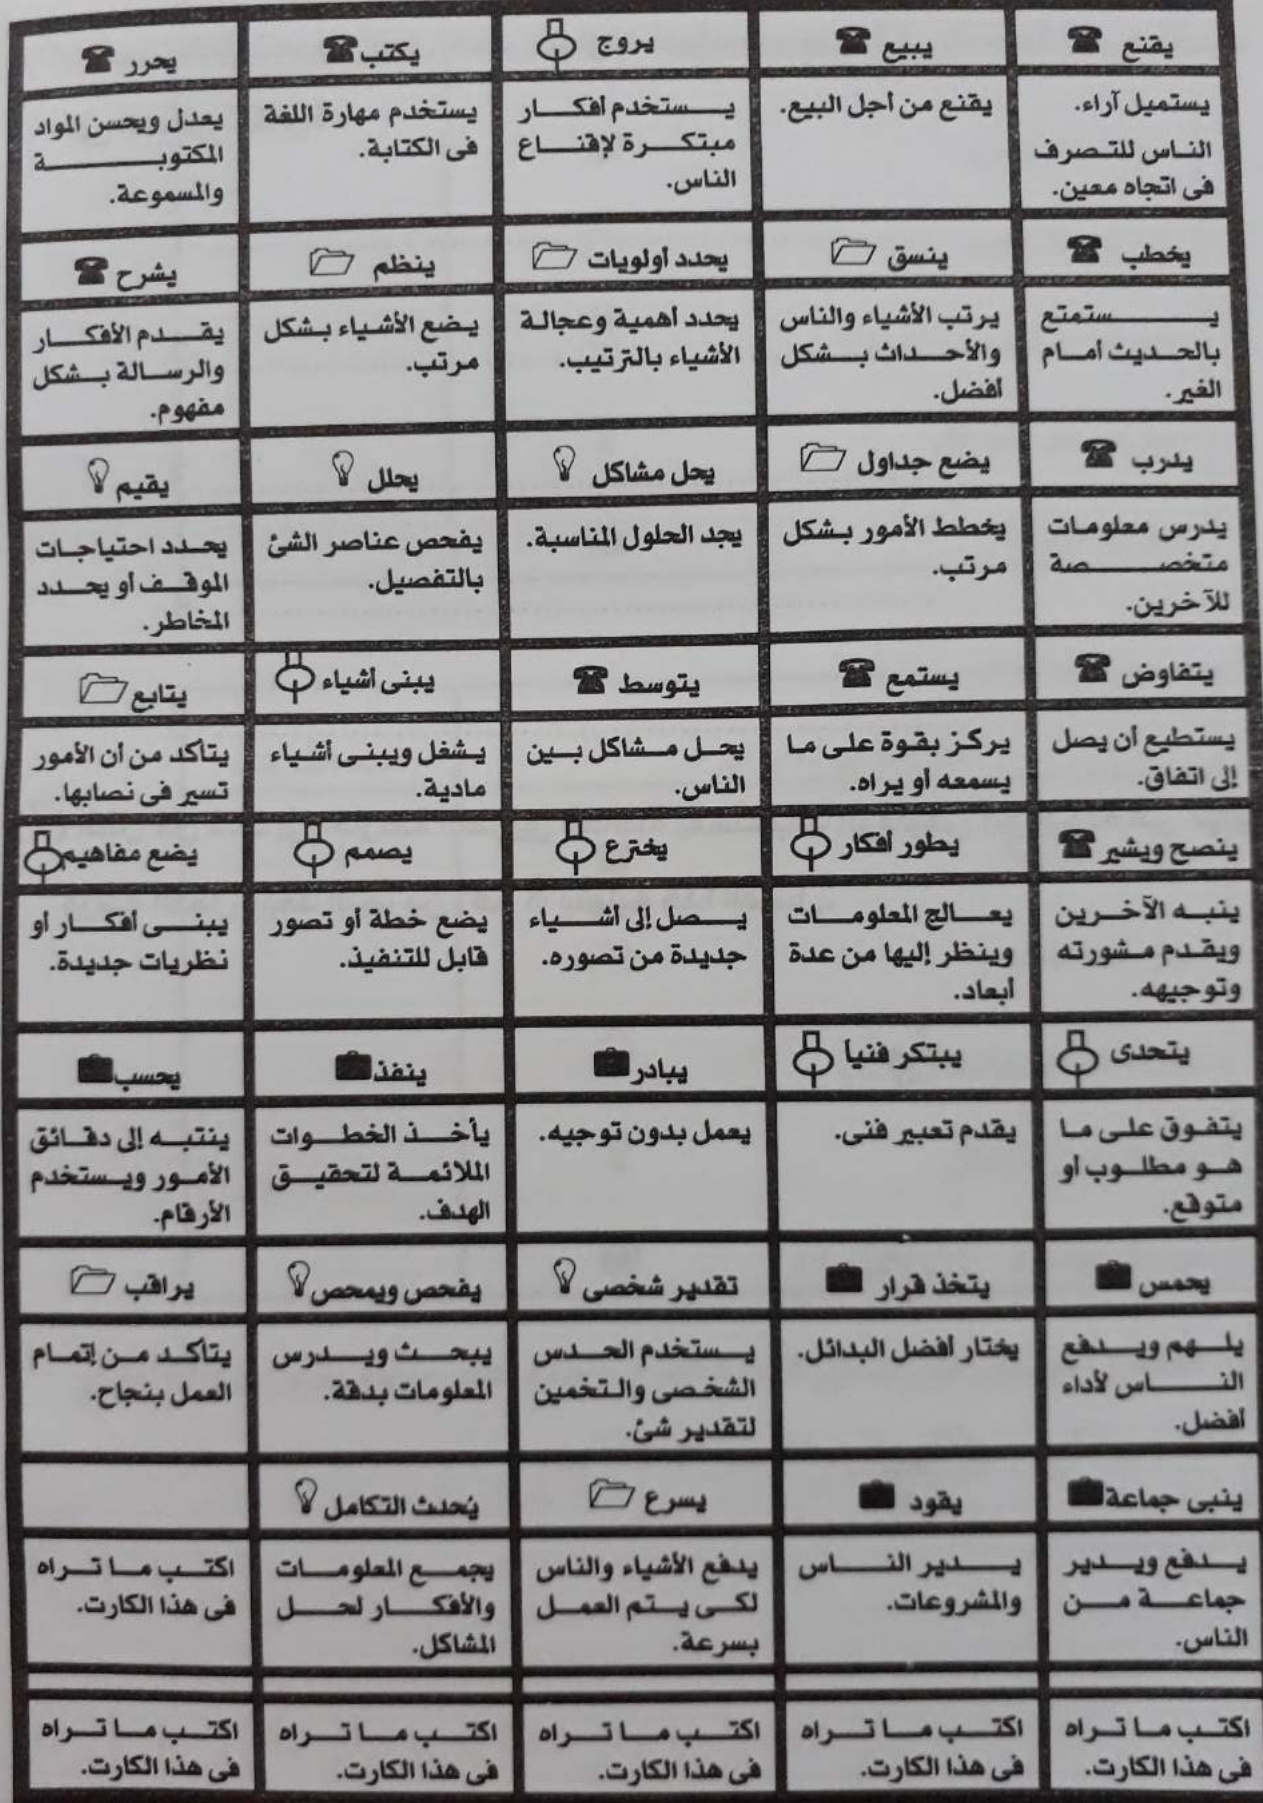 يقنع
يبيع
يروج
يكتب
يحرر
يستميل آراء.
الناس للتصرف
فى اتجاه معين.
يقنع من أجل البيع.
يستخدم أفكار
مبتكرة لإقناع
الناس.
يستخدم مهارة اللغة
فى الكتابة.
يعدل ويحسن المواد
المكتوبة
والمسموعة.
يخطب
ينسق
يحدد أولويات
ينظم
يشرح
يستمتع
بالحديث أمام
الغير.
يرتب الأشياء والناس
والأحداث بشكل
أفضل.
يحدد أهمية وعجالة
الأشياء بالترتيب.
يضع الأشياء بشكل
مرتب.
يقدم الأفكار
والرسالة بشكل
مفهوم.
يدرب
يضع جداول
يحل مشاكل
يحلل
يقيم
يدرس معلومات
متخصصة
للآخرين.
يخطط الأمور بشكل
مرتب.
يجد الحلول المناسبة.
يفحص عناصر الشئ
بالتفصيل.
يحدد احتياجات
الموقف أو يحدد
المخاطر.
يتفاوض
يستمع
يتوسط
يبنى أشياء
يتابع
يستطيع أن يصل
إلى اتفاق.
يركز بقوة على ما
يسمعه أو يراه.
يحل مشاكل بين
الناس.
يشغل ويبنى أشياء
مادية.
يتأكد من أن الأمور
تسير فى نصابها.
ينصح ويشير
يطور أفكار
يخترع
يصمم
يضع مفاهيم
ينبه الآخرين
ويقدم مشورته
وتوجيهه.
يعالج المعلومات
وينظر إليها من عدة
أبعاد.
يصل إلى أشياء
جديدة من تصوره.
يضع خطة أو تصور
قابل للتنفيذ.
يبنى أفكار أو
نظريات جديدة.
يتحدى
يبتكر فنيا
يبادر
ينفذ
يحسب
يتفوق على ما
هو مطلوب أو
متوقع.
يقدم تعبير فنى.
يعمل بدون توجيه.
يأخذ الخطوات
الملائمة لتحقيق
الهدف.
ينتبه إلى دقائق
الأمور ويستخدم
الأرقام.
يحمس
يتخذ قرار
تقدير شخصى
يفحص ويمحص
يراقب
يلهم ويدفع
الناس لأداء
أفضل.
يختار أفضل البدائل.
يستخدم الحدس
الشخصى والتخمين
لتقدير شئ.
يبحث ويدرس
المعلومات بدقة.
يتأكد من إتمام
العمل بنجاح.
ينبى جماعة
يقود
يسرع
يُحدث التكامل
يدفع ويدير
جماعة من
الناس.
يدير الناس
والمشروعات.
يدفع الأشياء والناس
لكى يتم العمل
بسرعة.
يجمع المعلومات
والأفكار لحل
المشاكل.
اكتب ما تراه
فى هذا الكارت.
اكتب ما تراه
فى هذا الكارت.
اكتب ما تراه
فى هذا الكارت.
اكتب ما تراه
فى هذا الكارت.
اكتب ما تراه
فى هذا الكارت.
اكتب ما تراه
فى هذا الكارت.